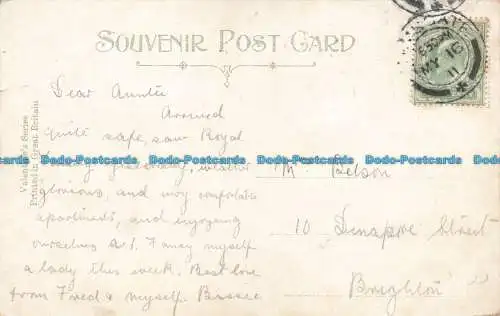 SOUVENIR POST CARD
RAMSGATE
MY 16
11
Valentine's Series
Printed in Great Britain
Dear Auntie
Arrived
quite safe, saw Royal
yesterday, weather
glorious, and very comfortable
apartments, and enjoying
ourselves A1. I may myself
a lady this week. Best love
from Fred & myself. Bessie
Mr Belson
10 Dinapore Street
Brighton
Dodo-Postcards Dodo-Postcards Dodo-Postcards Dodo-Postcards Dodo-Postcards Dodo-Postcards